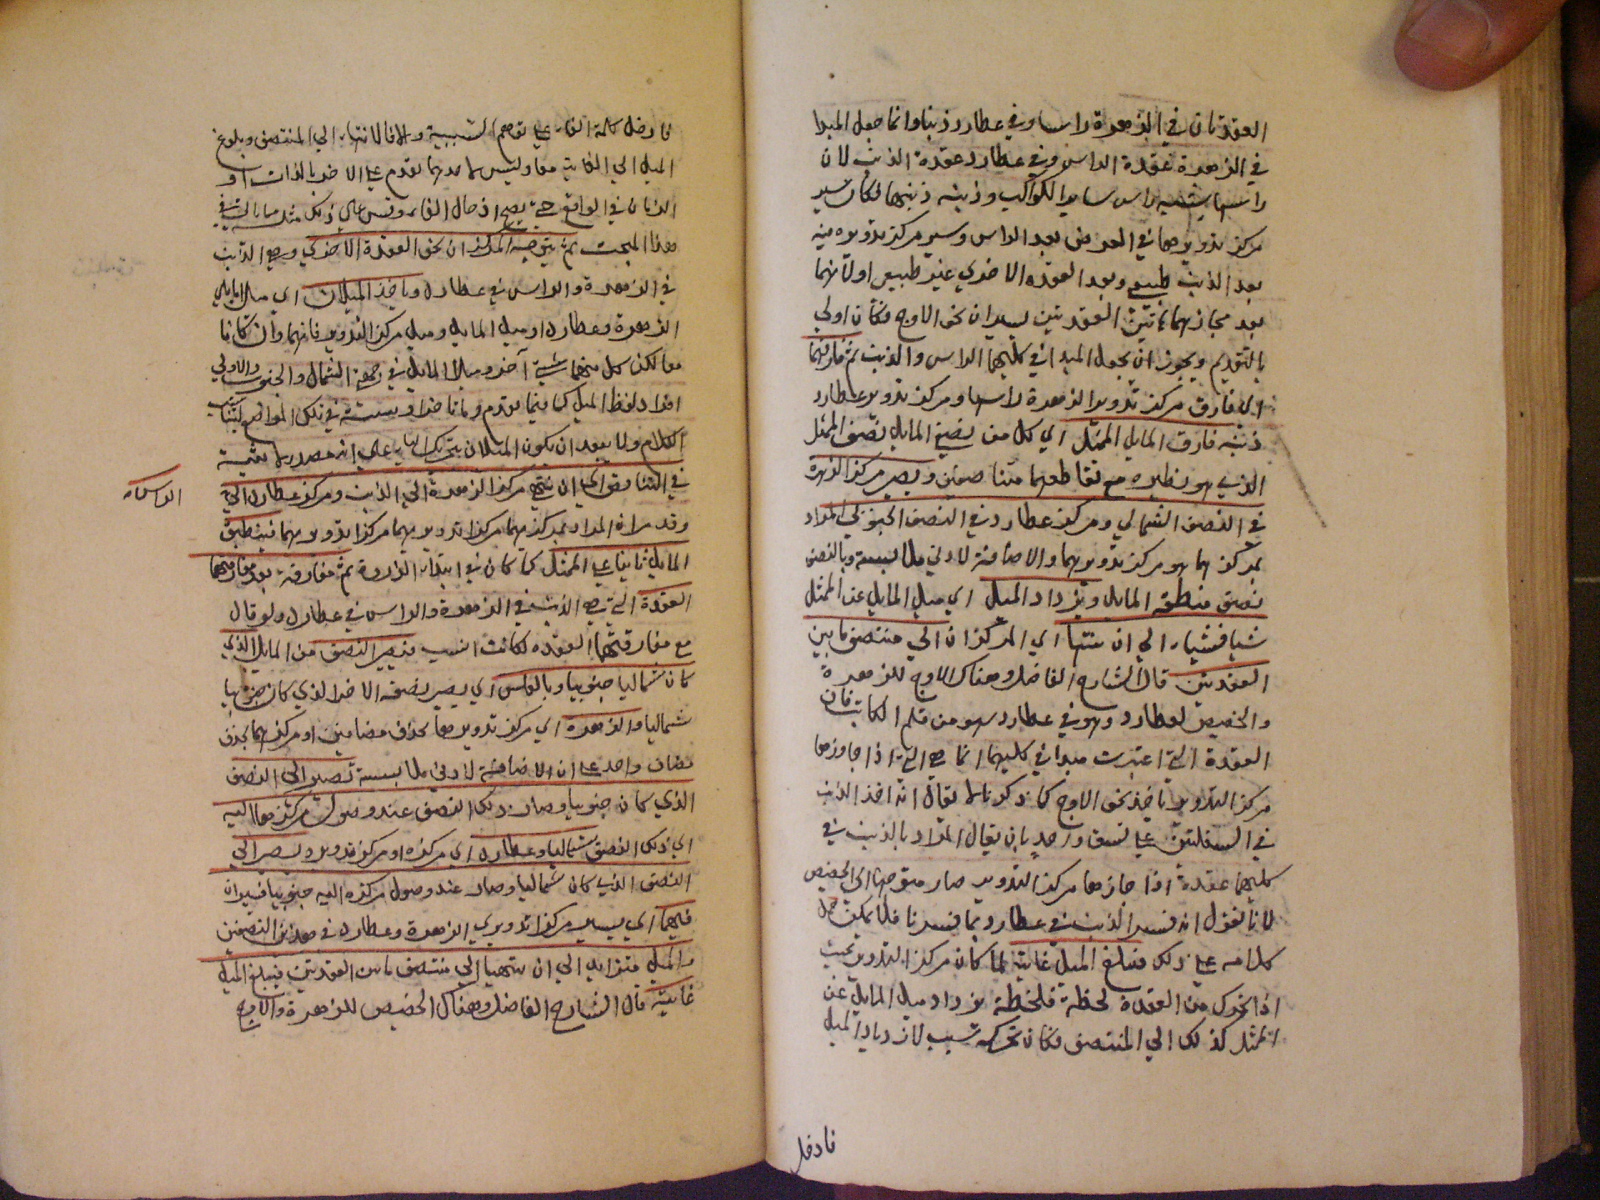 العقدتان في الزهرة راسا وفي عطارد ذنبا وانما جعل المبدا
في الزهرة عقدة الراس وفي عطارد عقدة الذنب لان
راس سائر الكواكب وذنبه ذنبهما لكان سير
مركز تدويرهما في العرض بعد الراس وسير مركز تدويره فيه
بعد الذنب طبيعي وبعد العقدة الاخرى غير طبيعي او لانهما
بعد مجازهما هاتين العقدتين يسيران نحو الاوج فكان اولى
بالتقديم ويجوز ان يجعل المبدا في كليهما الراس والذنب ثم فارقهما
اي فارق مركز تدوير الزهرة راسها ومركز تدوير عطارد
ذنبه فارق المايل الممثل اي كل من نصفي المايل نصف الممثل
الذي هو نظيره مع تقاطعهما متناصفين ويصير مركز الزهرة
في النصف الشمالي ومركز عطارد في النصف الجنوبي المراد
بمركزهما هو مركز تدويرهما والاضافة لادنى ملابسة وبالنصف
نصف منطقة المايل ويزداد الميل اي ميل المايل عن الممثل
شيا فشيا الى ان ينتهيا اي المركزان الى منتصف ما بين
العقدتين قال الشارح الفاضل وهناك الاوج للزهرة
والحضيض لعطارد وهو في عطارد سهو من قلم الكاتب فان
العقدة التي اعتبرت مبدا في كليهما انما هي التي اذا جاوزها
مركز التدوير ياخذ نحو الاوج كما ذكرنا لا يقال انه اخذ الذنب
في السفليتين على نسق واحد بان يقال المراد بالذنب في
كليهما عقدة اذا جازها مركز التدوير صار متوجها الى الحضيض
لانا نقول انه فسر الذنب في عطارد بما فسرنا فلا يمكن حمل
كلامه على ذلك فيبلغ الميل غايته لما كان مركز التدوير بحيث
اذا تحرك من العقدة لحظة فلحظة يزداد ميل المايل عن
الممثل كذلك الى المنتصف فكان تحركه سبب لازدياد الميل
فادخل
فادخل كلمة الفاء على توهم السببية والا فالانتهاء الى المنتصف وبلوغ
الميل الى الغاية معا وليس لاحدهما تقدم على الاخر بالذات او
الزمان في الواقع حتى يصح ادخال الفاء وقس على ذلك مثله
هذا المبحث ثم يتوجه المركز ان نحو العقدة الاخرى وهي الذنب
في الزهرة والراس في عطارد وياخذ الميلان اي ميلا مايلي
الزهرة وعطارد او ميل المايل وميل مركز التدوير فانهما وان كانا
معا لكن كل منهما شيء آخر وميلا المايل في جهتي الشمال والجنوب والاولى
افراد لفظ الميل كما فيما تقدم وما تاخر
الكلام ولا يبعد ان يكون الميلان بتحريك الياء على انه مصدر
في التناقص الى ان ينتهي مركز الزهرة الى الذنب ومركز عطارد الى
الراس
وقد مر ان المراد بمركزهما مركز تدويرهما فينطبق
المايل ثانيا على الممثل كما كان في ابتداء الدورة ثم مفارقة بعد مفارقتهما
العقدة التي هي الذنب في الزهرة والراس في عطارد ولو قال
مع مفارقتهما العقدة لكانت انسب فيصير النصف من المايل الذي
كان شماليا جنوبيا وبالعكس اي يصير نصفه الاخر الذي كان جنوبيا
شماليا والزهرة اي مركز تدويرها بحذف مضافين او مركزها بحذف
مضاف واحد على ان الاضافة لادنى ملابسة تصير الى النصف
الذي كان جنوبيا وصار ذلك النصف عند وصول مركزها اليه
اي ذلك النصف شماليا وعطارد اي مركزه او مركز تدويره يصير الى
النصف الذي كان شماليا وصار عند وصول مركزه اليه جنوبيا فيسيران
فيهما اي يسير مركزا تدويري الزهرة وعطارد في هذين النصفين
والميل متزايد الى ان ينتهيا الى منتصف ما بين العقدتين فيبلغ الميل
غايته قال الشارح الفاضل وهناك الحضيض للزهرة والاوج